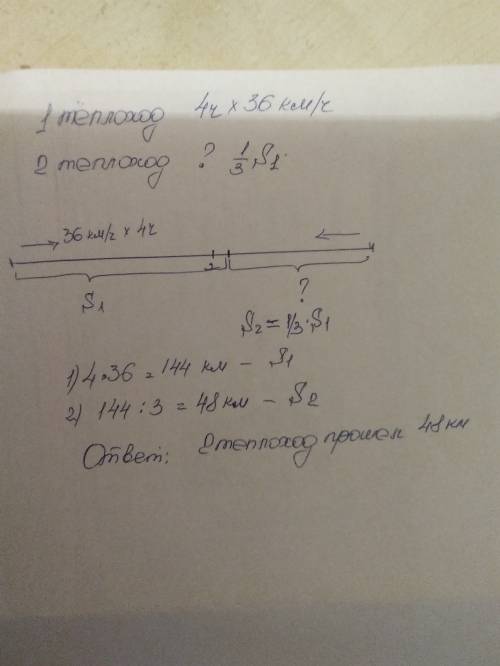 1 теплоход 4ч × 36 км/ч
2 теплоход ? 1/3 S1.
36 км/ч × 4ч
S1
?
S2 = 1/3 · S1
1) 4·36 = 144 км – S1
2) 144 : 3 = 48 км – S2
Ответ: 2 теплоход прошел 48 км